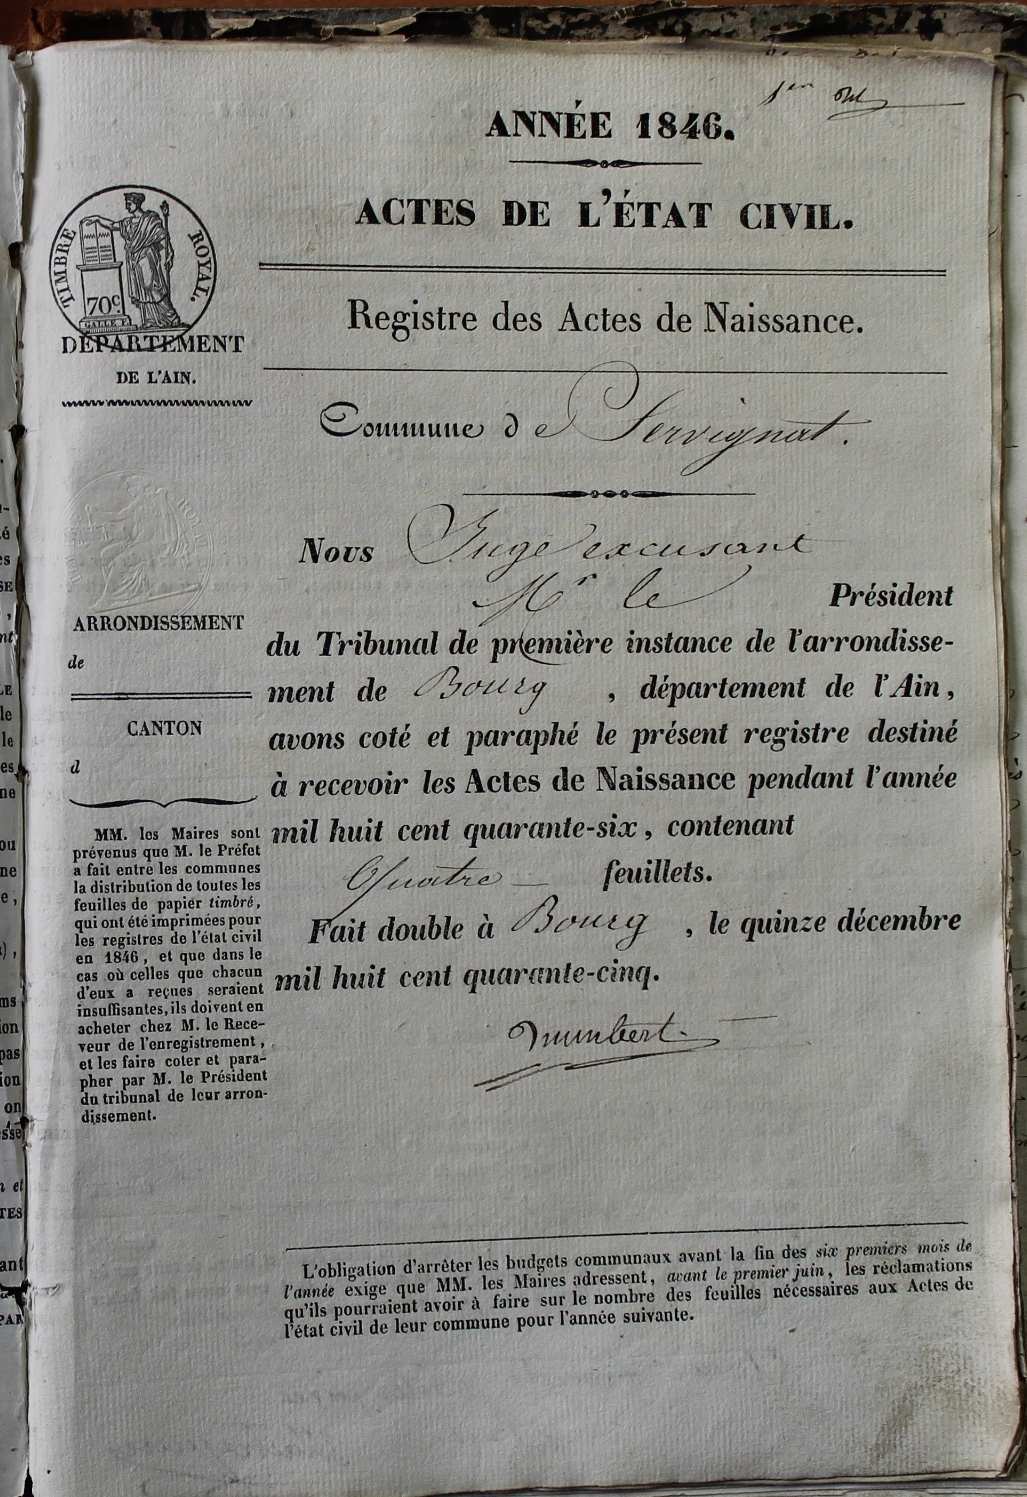 1er
ANNÉE 1846.
ACTES DE L'ÉTAT CIVIL.
TIMBRE ROYAL.
70c.
GALLE F.
DÉPARTEMENT
DE L'AIN.
Registre des Actes de Naissance.
Commune de Servignat.
Nous Juge excusant
Mr le Président
du Tribunal de première instance de l'arrondisse-
ment de Bourg, département de l'Ain,
avons coté et paraphé le présent registre destiné
à recevoir les Actes de Naissance pendant l'année
mil huit cent quarante-six, contenant
Quatre feuillets.
Fait double à Bourg, le quinze décembre
mil huit cent quarante-cinq.
ARRONDISSEMENT
de
CANTON
d
MM. les Maires sont
prévenus que M. le Préfet
a fait entre les communes
la distribution de toutes les
feuilles de papier timbré,
qui ont été imprimées pour
les registres de l'état civil
en 1846, et que dans le
cas où celles que chacun
d'eux a reçues seraient
insuffisantes, ils doivent en
acheter chez M. le Rece-
veur de l'enregistrement,
et les faire coter et para-
pher par M. le Président
du tribunal de leur arron-
dissement.
L'obligation d'arrêter les budgets communaux avant la fin des six premiers mois de
l'année exige que MM. les Maires adressent, avant le premier juin, les réclamations
qu'ils pourraient avoir à faire sur le nombre des feuilles nécessaires aux Actes de
l'état civil de leur commune pour l'année suivante.